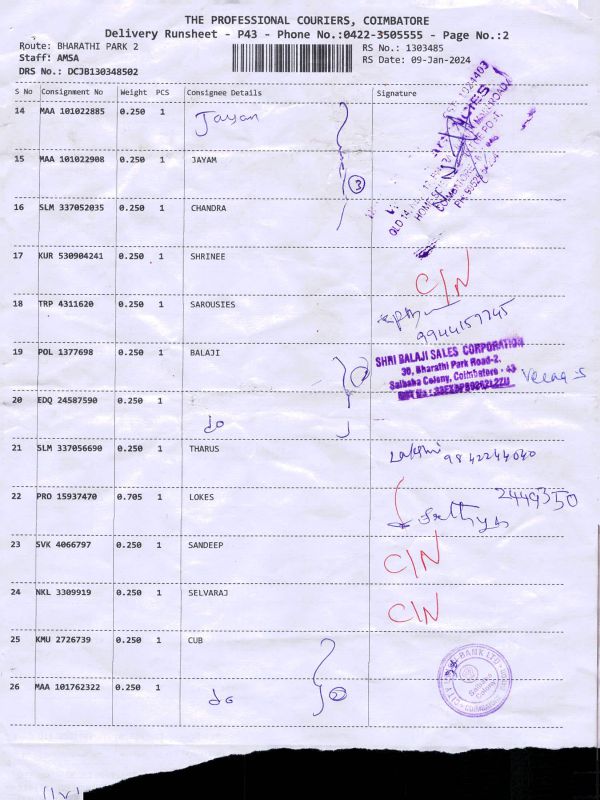 THE PROFESSIONAL COURIERS, COIMBATORE
Delivery Runsheet - P43 - Phone No.:0422-3505555 - Page No.:2
Route: BHARATHI PARK 2 RS No.: 1303485
Staff: AMSA RS Date: 09-Jan-2024
DRS No.: DCJB130348502
S No Consignment No Weight PCS Consignee Details Signature
14 MAA 101022885 0.250 1 Jayam
15 MAA 101022908 0.250 1 JAYAM
3
16 SLM 337052035 0.250 1 CHANDRA
17 KUR 530904241 0.250 1 SHRINEE C/N
18 TRP 4311620 0.250 1 SAROUSIES
9944157745
19 POL 1377698 0.250 1 BALAJI
SHRI BALAJI SALES CORPORATION
30, Bharathi Park Road-2,
Saibaba Colony, Coimbatore - 43
20 EDQ 24587590 0.250 1 do
21 SLM 337056690 0.250 1 THARUS Lakshmi 9842244040
22 PRO 15937470 0.705 1 LOKES 2449350
Sathya
23 SVK 4066797 0.250 1 SANDEEP C/N
24 NKL 3309919 0.250 1 SELVARAJ C/N
25 KMU 2726739 0.250 1 CUB
26 MAA 101762322 0.250 1 do 2